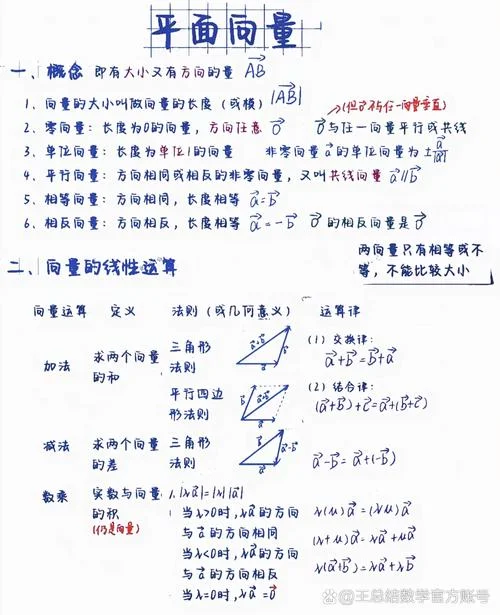 平面向量
一、概念 即有大小又有方向的量 $\overrightarrow{AB}$
1、向量的大小叫做向量的长度(或模) $|\overrightarrow{AB}|$
2、零向量:长度为0的向量,方向任意 $\vec{0}$ $\vec{0}$与任一向量平行或共线
3、单位向量:长度为单位1的向量 非零向量$\vec{a}$的单位向量为$\pm\frac{\vec{a}}{|\vec{a}|}$
4、平行向量:方向相同或相反的非零向量,又叫共线向量 $\vec{a}//\vec{b}$
5、相等向量:方向相同,长度相等 $\vec{a}=\vec{b}$
6、相反向量:方向相反,长度相等 $\vec{a}=-\vec{b}$ $\vec{0}$的相反向量是$\vec{0}$
两向量只有相等或不
等,不能比较大小
二、向量的线性运算
向量运算 定义 法则(或几何意义) 运算律
加法 求两个向量
的和
三角形
法则
$\vec{a}+\vec{b}$
$\vec{b}$
$\vec{a}$
(1)交换律:
$\vec{a}+\vec{b}=\vec{b}+\vec{a}$
平行四边
形法则
$\vec{b}$
$\vec{a}+\vec{b}$
$\vec{a}$
(2)结合律:
$(\vec{a}+\vec{b})+\vec{c}=\vec{a}+(\vec{b}+\vec{c})$
减法 求两个向量
的差
三角形
法则
$\vec{b}$
$\vec{a}-\vec{b}$
$\vec{a}$
$\vec{a}-\vec{b}=\vec{a}+(-\vec{b})$
数乘 实数与向量
的积
(仍是向量)
1、$|\lambda\vec{a}|=|\lambda||\vec{a}|$
当λ>0时,$\lambda\vec{a}$的方向
与$\vec{a}$的方向相同
当λ<0时,$\lambda\vec{a}$的方向
与$\vec{a}$的方向相反
当λ=0时,$\lambda\vec{a}=\vec{0}$
$\lambda(\mu)\vec{a}=(\lambda\mu)\vec{a}$
$(\lambda+\mu)\vec{a}=\lambda\vec{a}+\mu\vec{a}$
$\lambda(\vec{a}+\vec{b})=\lambda\vec{a}+\lambda\vec{b}$
@王总结数学官方账号